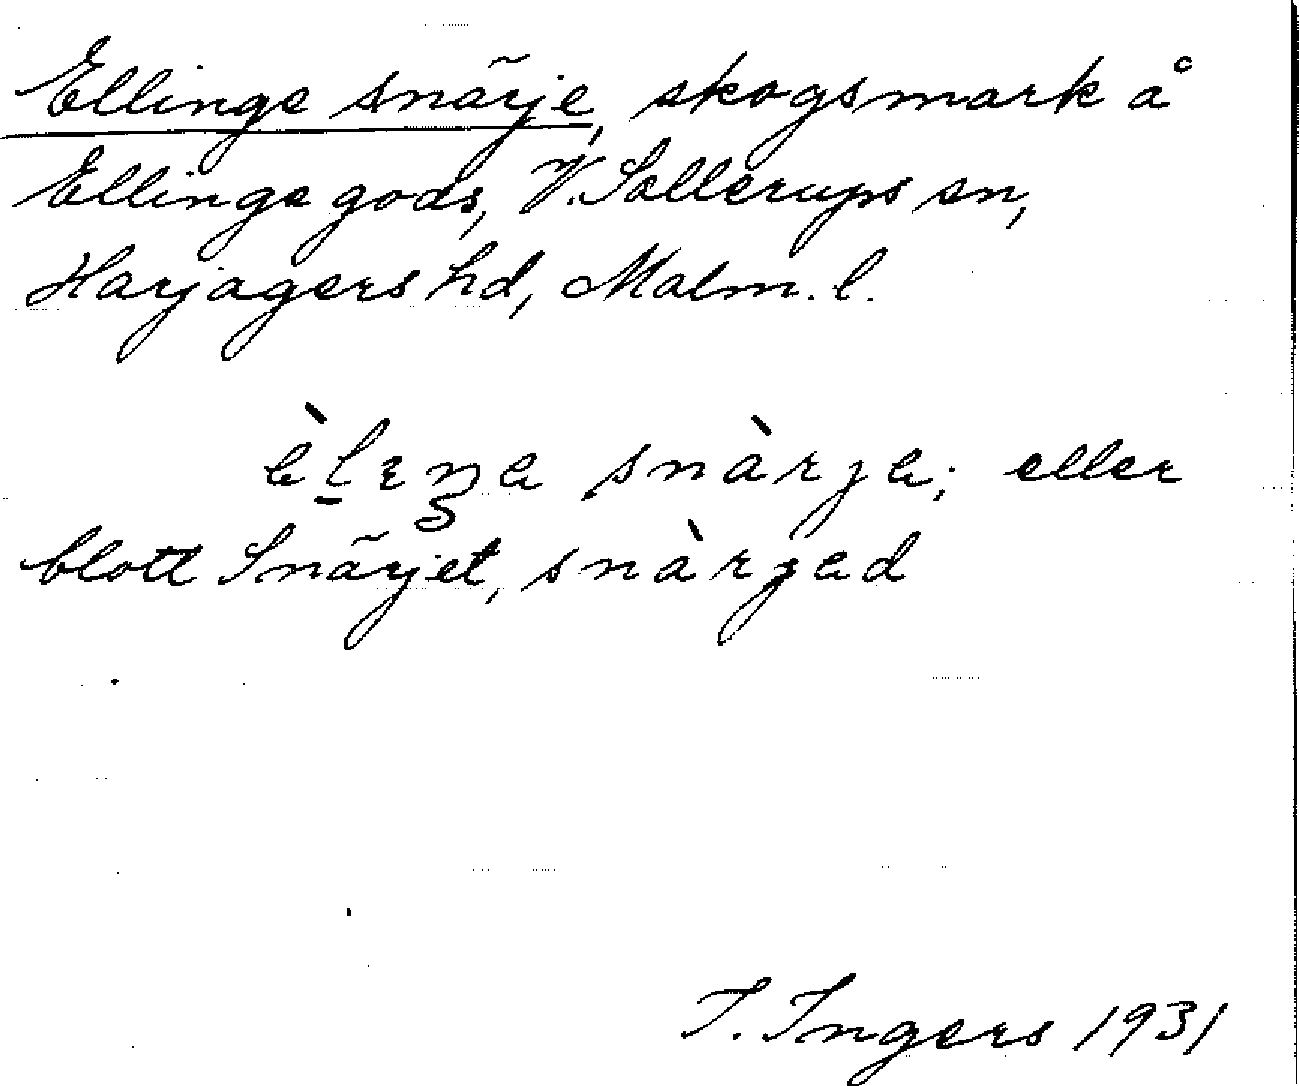 Ellinge snärje, skogsmark å
Ellinge gods, V. Sallerups sn,
Harjagers hd, Malm. l.
èlɪŋe snàrje; eller
blott Snärjet, snàrjed
I. Ingers 1931